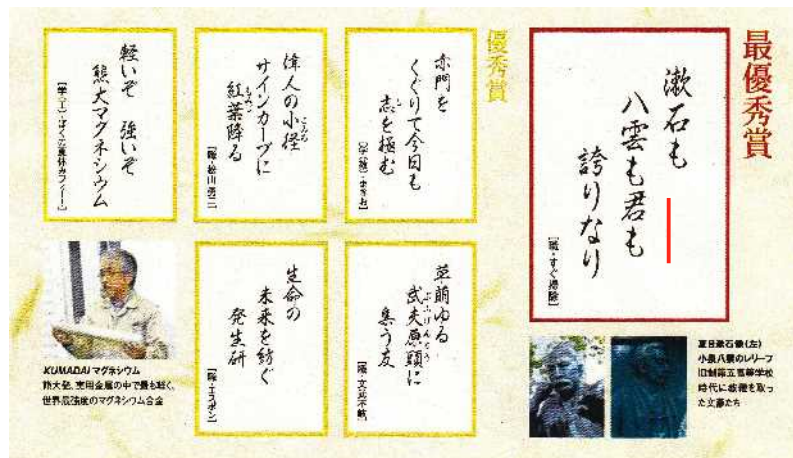 最優秀賞
漱石も
八雲も君も
誇りなり
[職・すぐ掃除]
夏目漱石像(左)
小泉八雲のレリーフ
旧制第五高等学校
時代に教鞭を取っ
た文豪たち
優秀賞
赤門を
くぐりて今日も
志を極む
偉人の小径
サインカーブに
紅葉降る
軽いぞ 強いぞ
熊大マグネシウム
草萌ゆる
武夫原頭に
集う友
生命の
未来を紡ぐ
発生研
KUMADAI マグネシウム
熊大発、実用金属の中で最も軽く、
世界最強度のマグネシウム合金